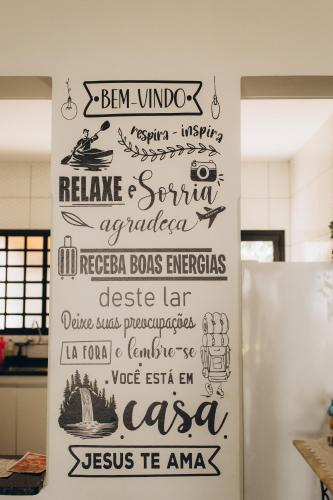 BEM-VINDO
respira - inspira
RELAXE e Sorria
agradeça
RECEBA BOAS ENERGIAS
deste lar
Deixe suas preocupações
LA FORA e lembre-se
. VOCÊ ESTÁ EM
casa.
JESUS TE AMA